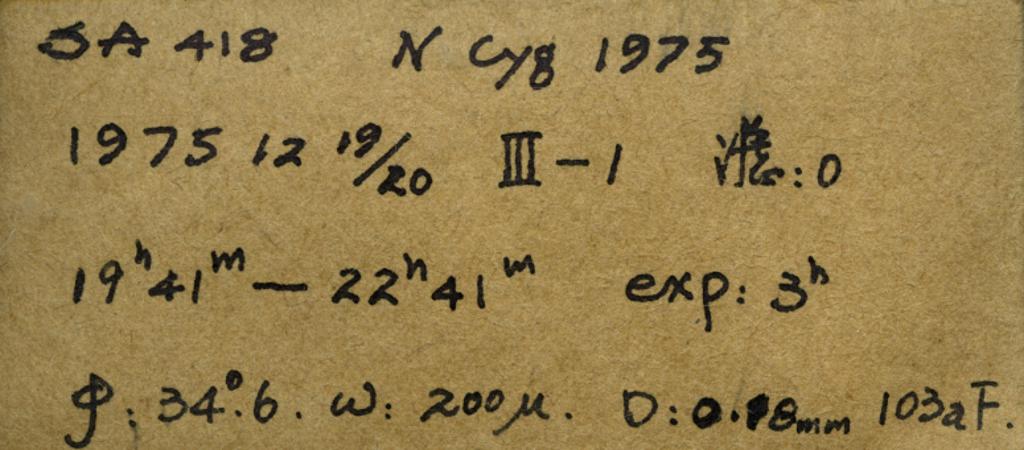 SA 418 N Cyg 1975
1975 12 19/20 III-1 :0
19h41m — 22h41m exp: 3h
φ: 34°.6. ω: 200μ. D: 0.18mm 103aF.